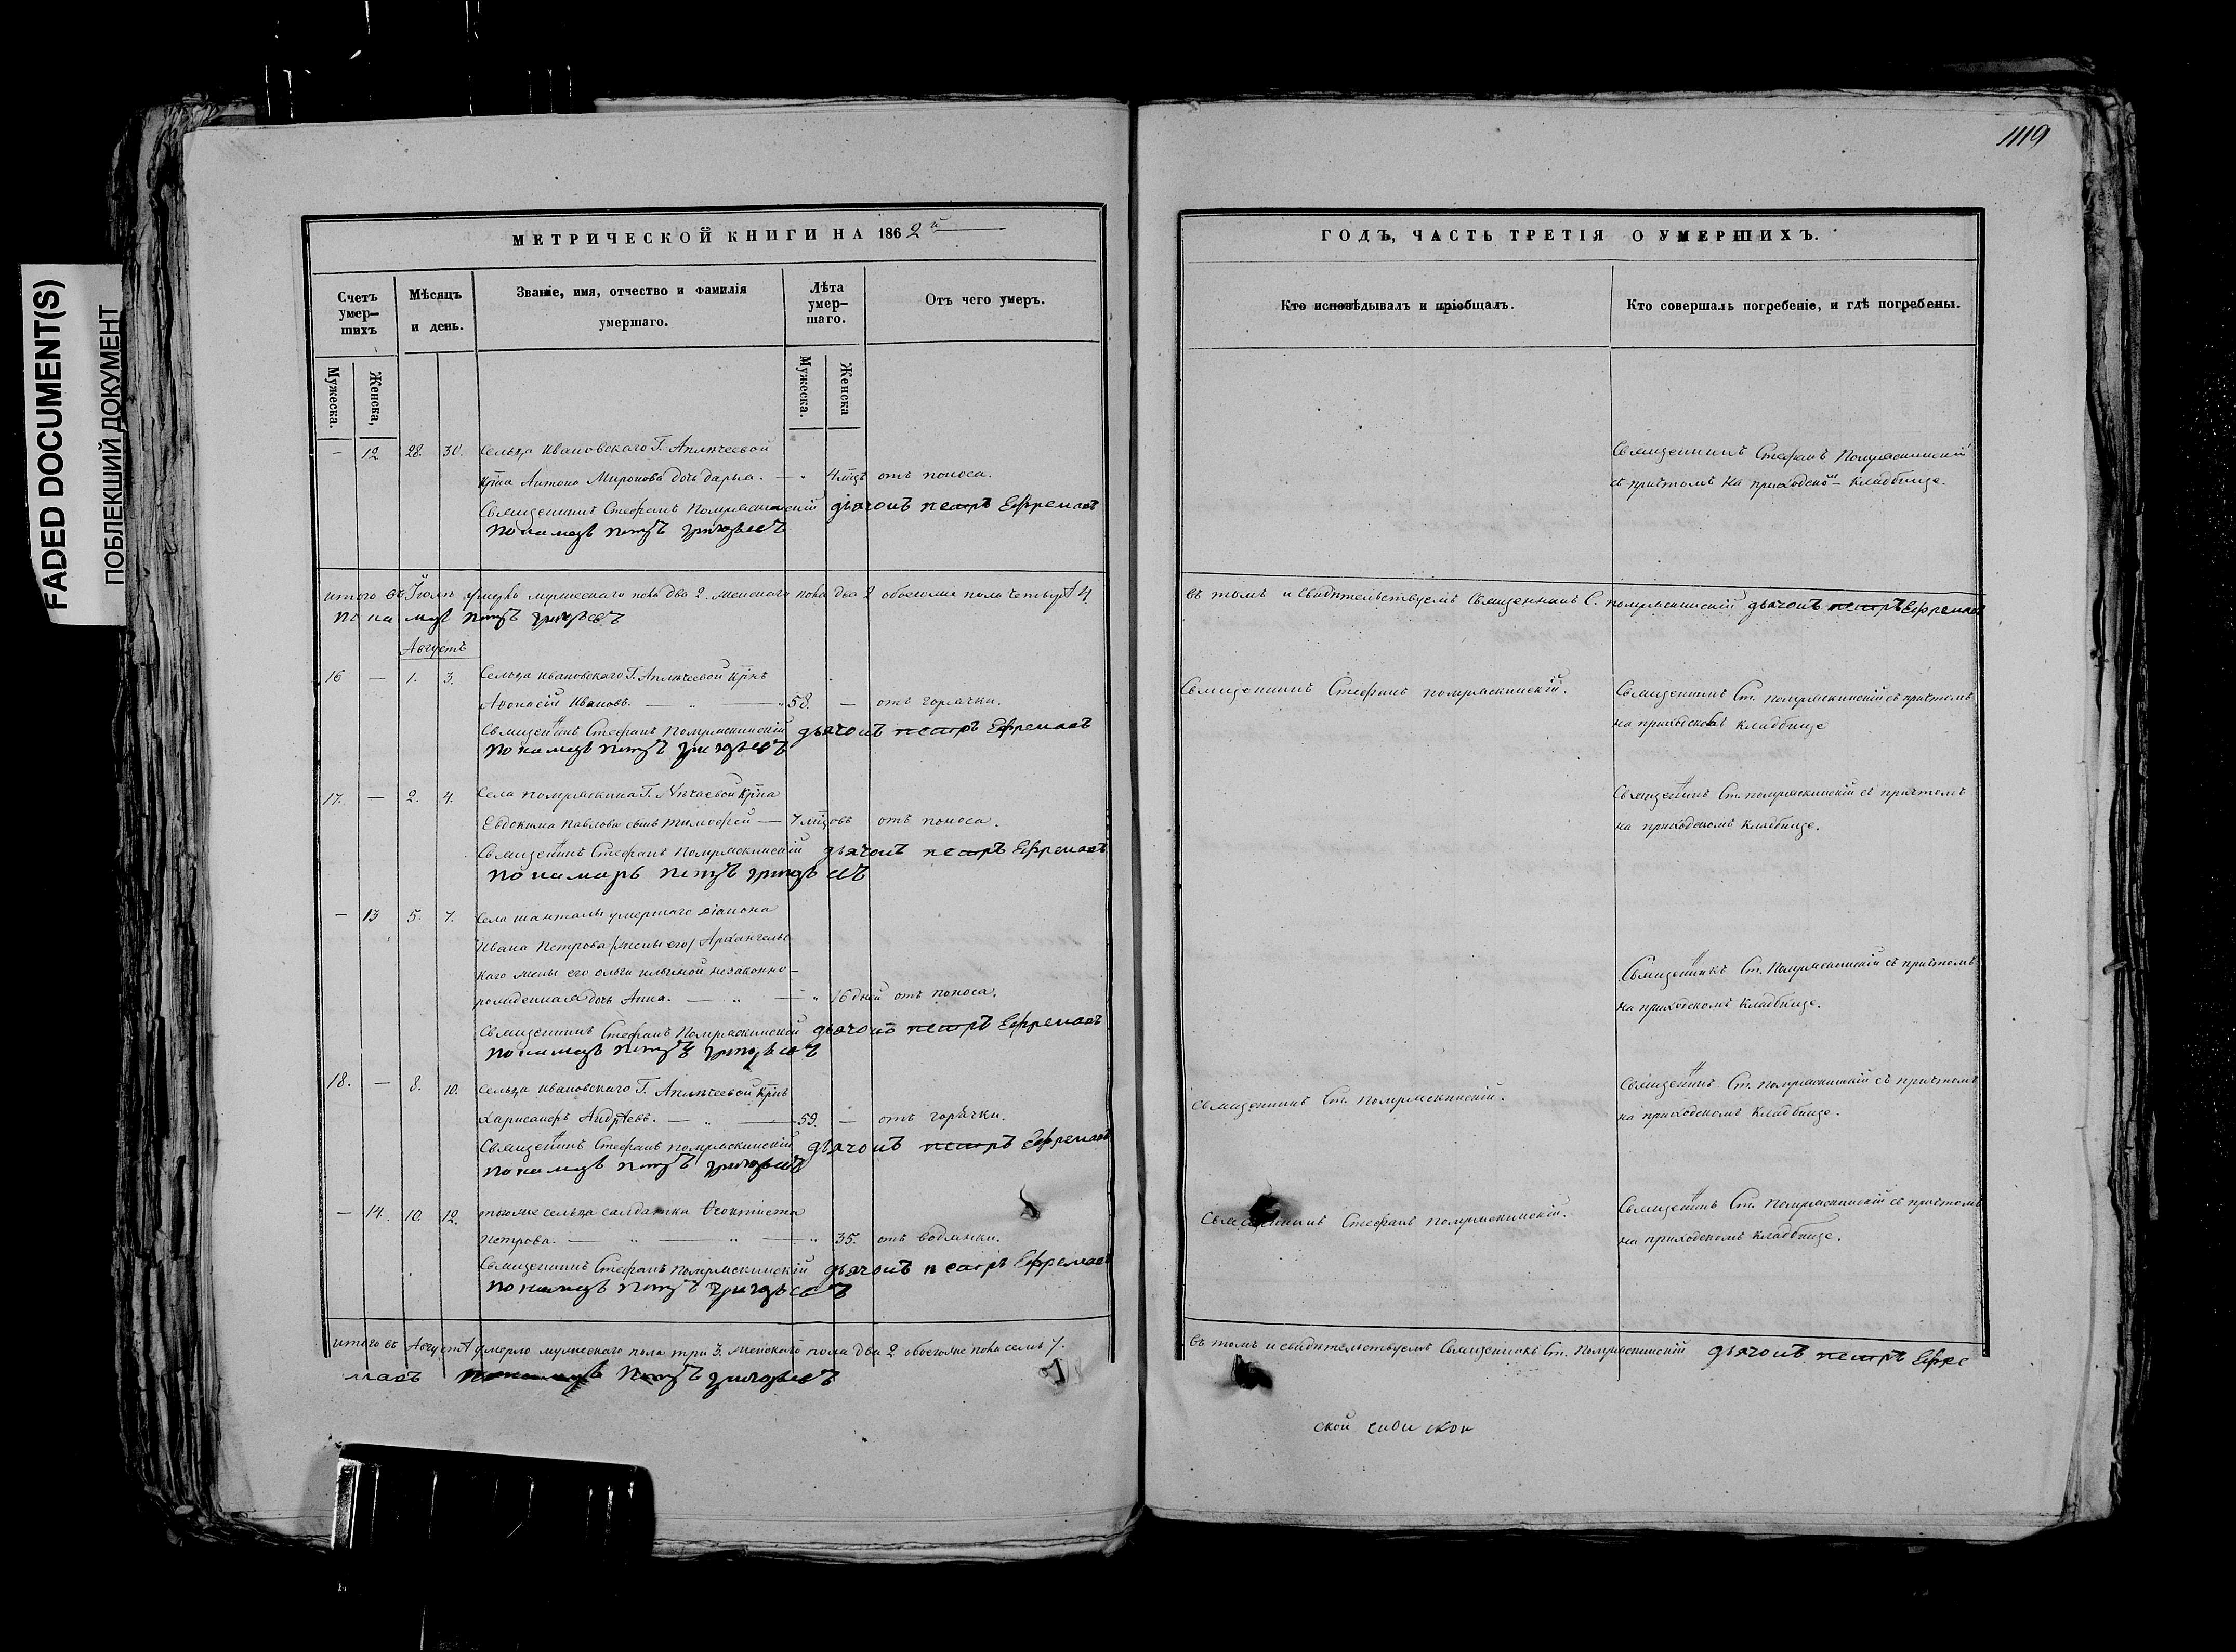 FADED DOCUMENT(S)
ПОБЛЕКШИЙ ДОКУМЕНТ
МЕТРИЧЕСКОЙ КНИГИ НА 1862й
Счетъ умер–шихъ
Мѣсяцъ и день.
Званіе, имя, отчество и фамилія умершаго.
Лѣта умер–шаго.
Отъ чего умеръ.
Мужеска.
Женска,
Мужеска.
Женска
– 12 28. 30. Сельца Ивановскаго Г.
Антона Миронова дочь Дарья. – отъ поноса.
Священникъ Стефанъ Помряскинскій дьячокъ петръ Ефремовъ
пономарь петръ григорьевъ
итого въ Іюлѣ умерло мужескаго пола два 2. женскаго пола два 2 обоегоже пола четыре 4.
пономарь петръ григорьевъ
Августъ
16 — 1. 3. Сельца Ивановскаго Г.
Аѳонасій Ивановъ. — „ — „ 58. — отъ горячки.
Священникъ Стефанъ Помряскинскій дьячокъ петръ Ефремовъ
пономарь петръ григорьевъ
17. — 2. 4. Села Помряскина Г.
Евдокима Павлова сынъ Тимофей — 7 отъ поноса.
Священникъ Стефанъ Помряскинскій дьячокъ петръ Ефремовъ
пономарь петръ григорьевъ
– 13 5. 7. Села Шанталы умершаго діакона
Ивана Петрова /жены его/ Архангельс
каго жены его Ольги Ильиной незаконно–
рожденная дочь Анна. — „ — „ 16 дней отъ поноса.
Священникъ Стефанъ Помряскинскій дьячокъ петръ Ефремовъ
пономарь петръ григорьевъ
18. — 8. 10. Сельца Ивановскаго Г.
Андрѣевъ. — „ — 59. — отъ горячки.
Священникъ Стефанъ Помряскинскій дьячокъ петръ Ефремовъ
пономарь петръ григорьевъ
– 14. 10. 12. тогоже сельца салдатка Ѳеоктиста
Петрова. — „ — „ — „ 35. отъ водянки.
Священникъ Стефанъ Помряскинскій дьячокъ петръ Ефремовъ
пономарь петръ григорьевъ
итого въ Августѣ умерло мужескаго пола три 3. женскаго пола два 2 обоегоже пола семь 7.
мовъ пономарь петръ григорьевъ
1119
ГОДЪ, ЧАСТЬ ТРЕТІЯ О УМЕРШИХЪ.
Кто исповѣдывалъ и пріобщалъ.
Кто совершалъ погребеніе, и гдѣ погребены.
Священникъ Стефанъ Помряскинскій
съ причтомъ на приходском кладбище.
въ томъ и свидѣтельствуемъ Священникъ С. Помряскинскій дьячокъ петръ Ефремовъ
Священникъ Стефанъ Помряскинскій.
Священникъ Ст. Помряскинскій съ причтомъ
на приходскомъ кладбище
Священникъ Ст. Помряскинскій съ причтомъ
на приходскомъ кладбище.
Священникъ Ст. Помряскинскій съ причтомъ
на приходскомъ кладбище.
Священникъ Ст. Помряскинскій.
Священникъ Ст. Помряскинскій съ причтомъ
на приходскомъ кладбище.
Священникъ Стефанъ Помряскинскій.
Священникъ Ст. Помряскинскій съ причтомъ
на приходскомъ кладбище.
въ томъ и свидѣтельствуемъ Священникъ Ст. Помряскинскій дьячокъ петръ Ефре
ской